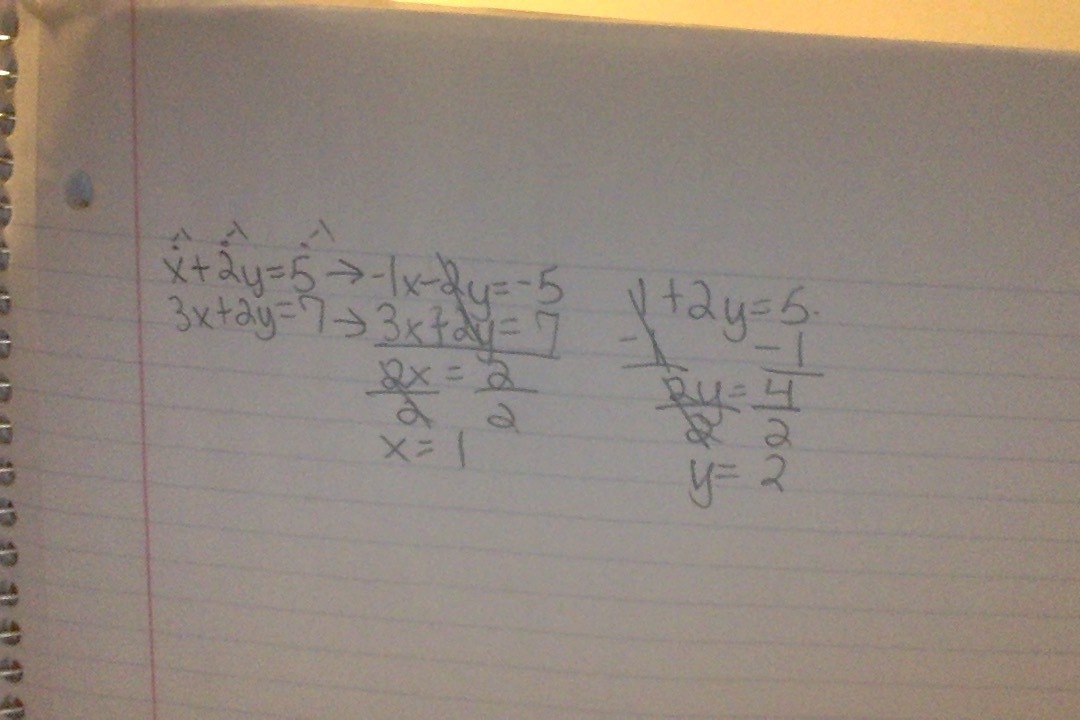 ·-1 ·-1 ·-1
x+2y=5 → -1x-2y=-5
3x+2y=7 → 3x+2y=7
2x = 2
2 2
x = 1
1+2y=5.
-1 -1
2y=4
2 2
y= 2